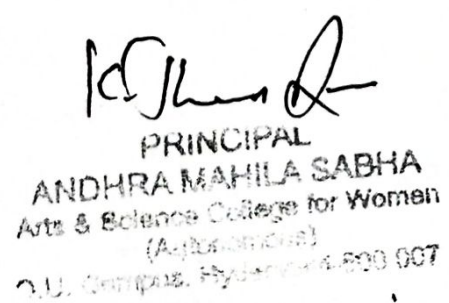 PRINCIPAL
ANDHRA MAHILA SABHA
Arts & Science College for Women
(Autonomous)
O.U. Campus, Hyderabad-500 007